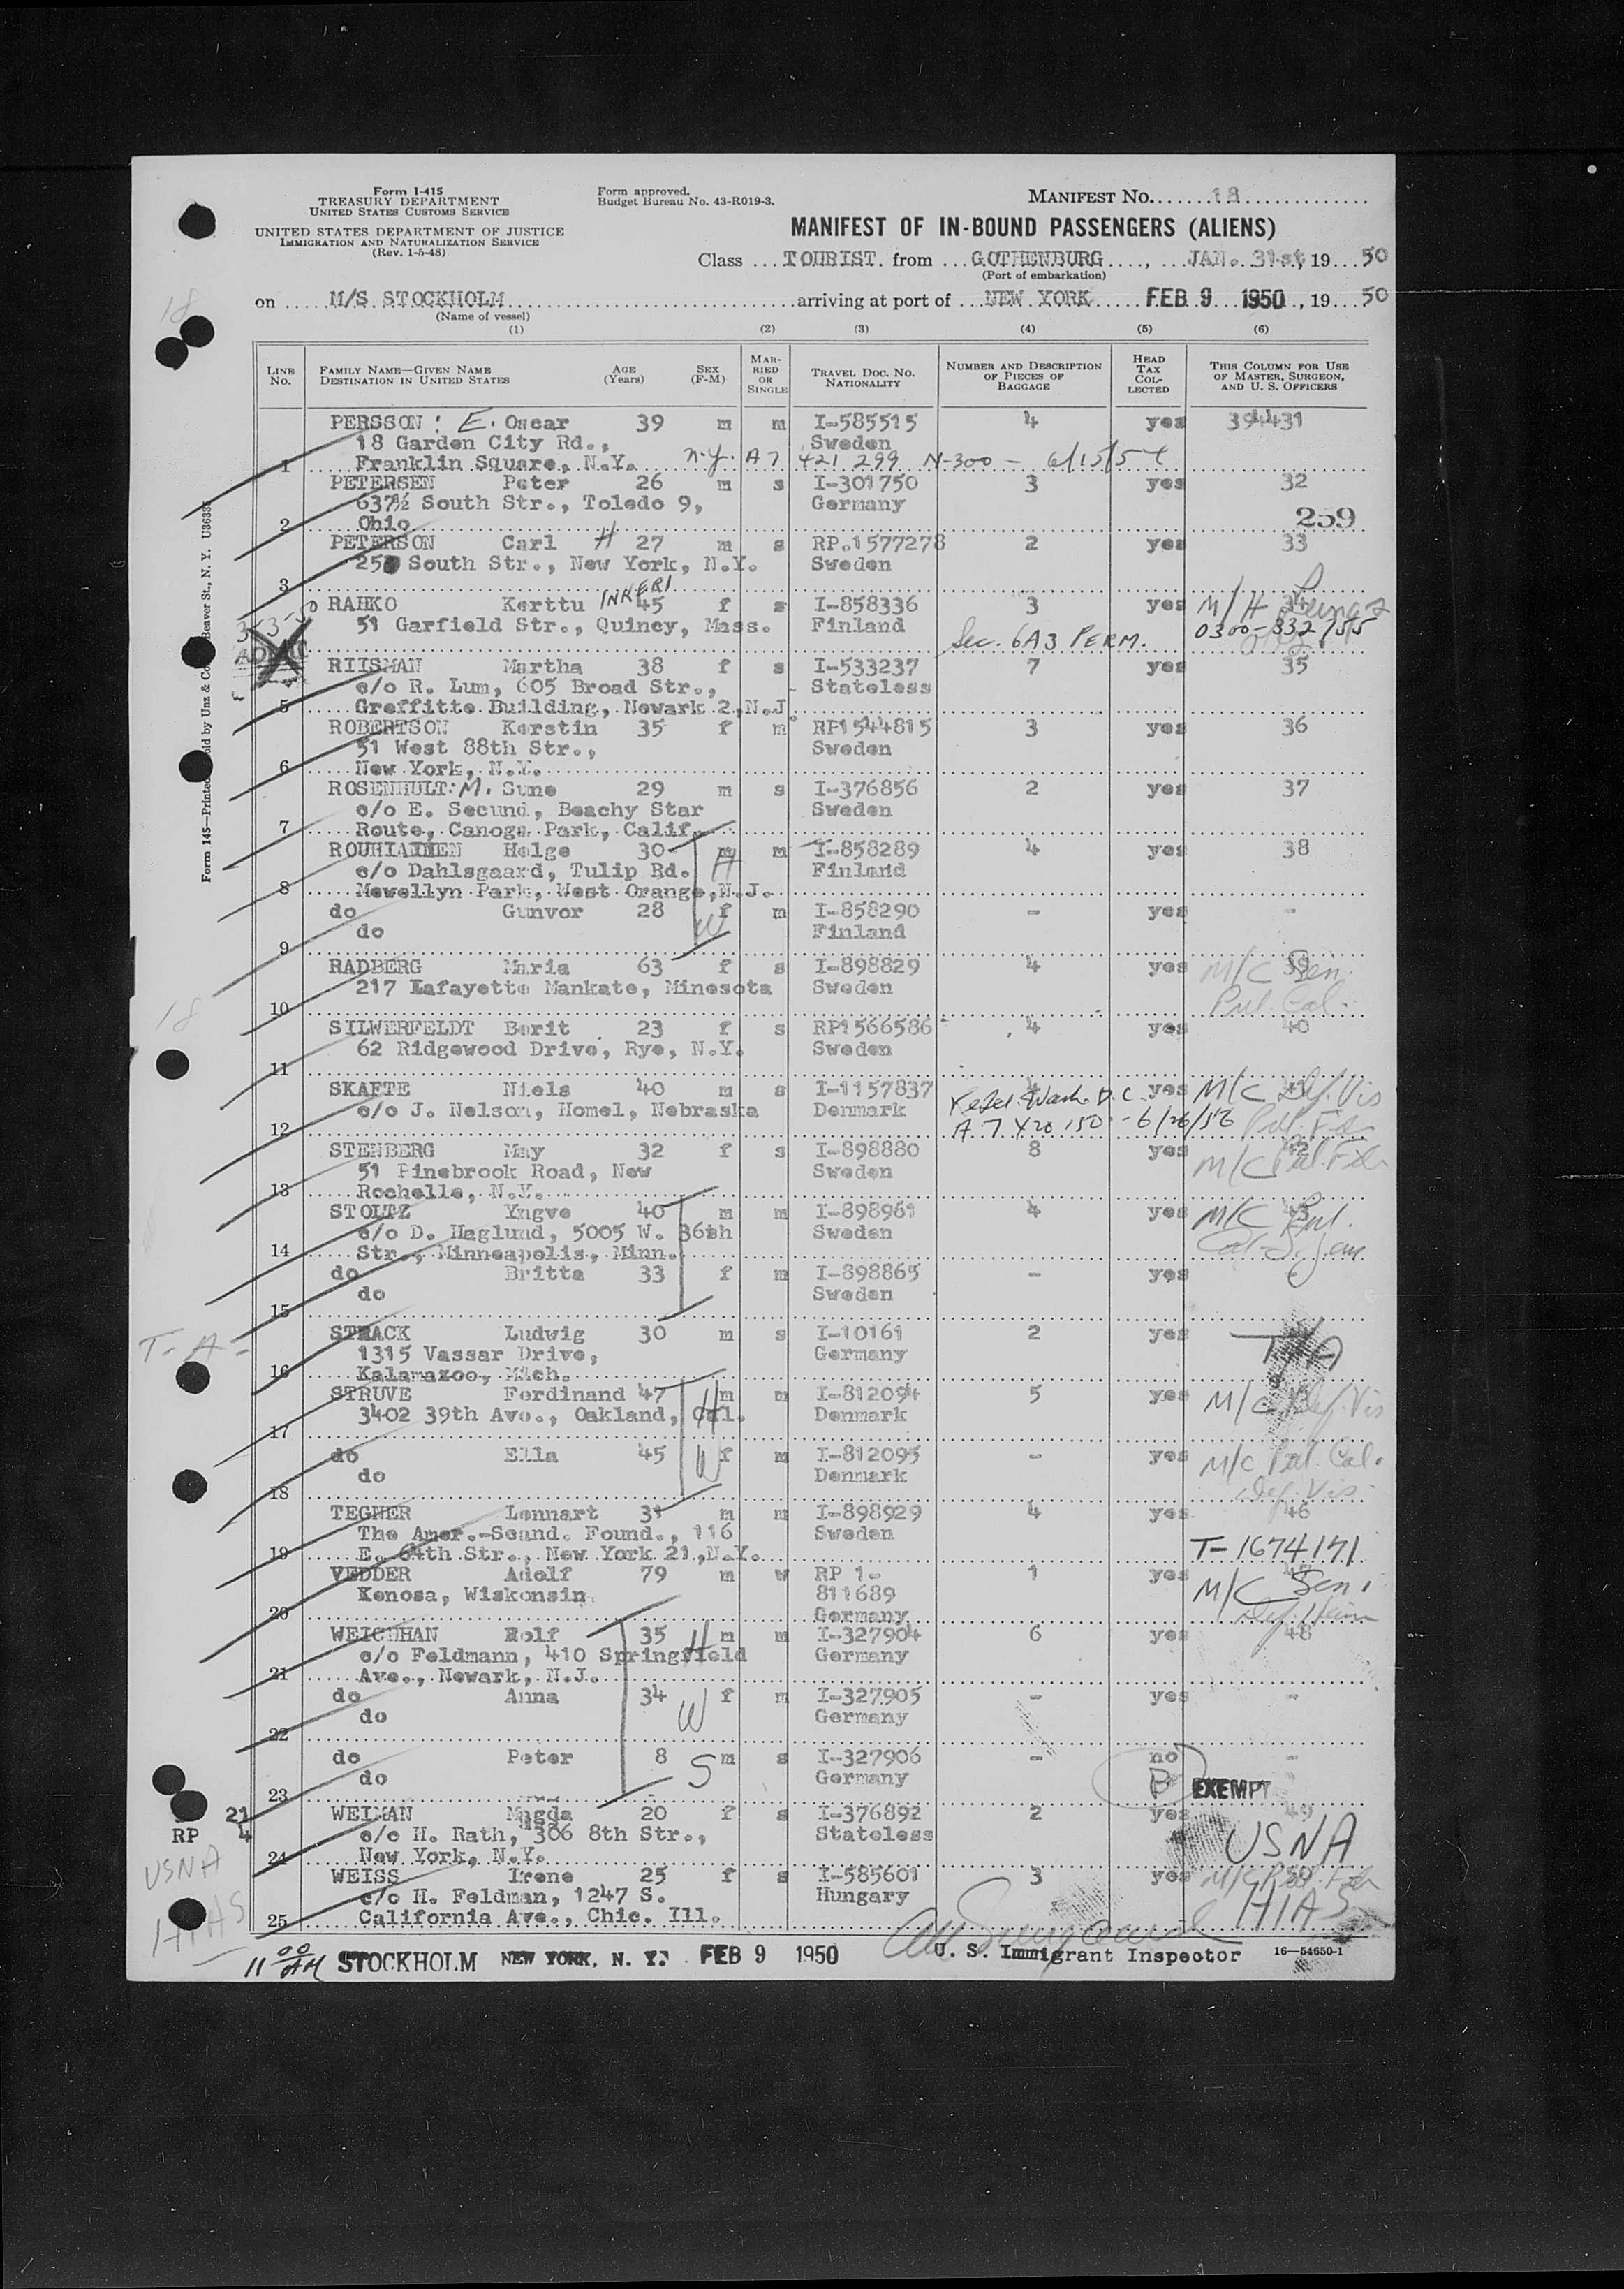 Form I-415
TREASURY DEPARTMENT
UNITED STATES CUSTOMS SERVICE
UNITED STATES DEPARTMENT OF JUSTICE
IMMIGRATION AND NATURALIZATION SERVICE
(Rev. 1-5-48)
Form approved.
Budget Bureau No. 43-R019-3.
MANIFEST No. 18
MANIFEST OF IN-BOUND PASSENGERS (ALIENS)
Class TOURIST from GOTHENBURG, JAN. 31st, 19 50
(Port of embarkation)
on M/S STOCKHOLM arriving at port of NEW YORK FEB 9 1950, 19 50
(Name of vessel)
(1) (2) (3) (4) (5) (6)
LINE No. FAMILY NAME—GIVEN NAME DESTINATION IN UNITED STATES AGE (Years) SEX (F-M) MARRIED OR SINGLE TRAVEL DOC. No. NATIONALITY NUMBER AND DESCRIPTION OF PIECES OF BAGGAGE HEAD TAX COLLECTED THIS COLUMN FOR USE OF MASTER, SURGEON, AND U. S. OFFICERS
PERSSON: E. Oscar 39 m m I-585515 4 yes 394431
18 Garden City Rd., Sweden
1 Franklin Square, N.Y. N.Y. A7 421 299 N-300 - 6/15/54
PETERSEN Peter 26 m s I-301750 3 yes 32
637½ South Str., Toledo 9, Germany
2 Ohio 259
PETERSON Carl H 27 m s RP.1577278 2 yes 33
25 South Str., New York, N.Y. Sweden
3
RAHKO Kerttu INKERI 45 f s I-858336 3 yes M/H
51 Garfield Str., Quincy, Mass. Finland 0300-332755
3-3-50 Sec. 6A3 PERM.
RIISMAN Martha 38 f s I-533237 7 yes 35
c/o R. Lum, 605 Broad Str., Stateless
5 Greffitte Building, Newark 2, N.J.
ROBERTSON Kerstin 35 f m RP1544815 3 yes 36
51 West 88th Str., Sweden
6 New York, N.Y.
ROSENHULT: M. Sune 29 m s I-376856 2 yes 37
c/o E. Secund, Beachy Star Sweden
7 Route, Canoga Park, Calif.
ROUHIAINEN Helge 30 m m I-858289 4 yes 38
c/o Dahlsgaard, Tulip Rd. H Finland
8 Mewellyn Park, West Orange, N.J.
do Gunvor 28 f m I-858290 - yes -
do W Finland
9
RADBERG Maria 63 f s I-898829 4 yes M/C Sen.
217 Lafayette Mankate, Minesota Sweden Pul. Cal.
10
SILWERFELDT Berit 23 f s RP1566586 4 yes 40
62 Ridgewood Drive, Rye, N.Y. Sweden
11
SKAFTE Niels 40 m s I-1157837 yes M/C Def. Vis
c/o J. Nelson, Homel, Nebraska Denmark Wash. D.C.
12 A 7 420 150 - 6/26/56
STENBERG May 32 f s I-898880 8 yes 42
51 Pinebrook Road, New Sweden M/C Pul. Fib
13 Rochelle, N.Y.
STOLTZ Yngve 40 m m I-898961 4 yes M/C Pul.
c/o D. Haglund, 5005 W. 36th Sweden
14 Str., Minneapolis, Minn.
do Britta 33 f m I-898865 - yes
do Sweden
15
T-A- STRACK Ludwig 30 m s I-10161 2 yes T/A
1315 Vassar Drive, Germany
16 Kalamazoo, Mich.
STRUVE Ferdinand 47 H m m I-812094 5 yes M/C Def. Vis
3402 39th Ave., Oakland, Cal. Denmark
17
do Ella 45 W f m I-812095 - yes M/C Pul. Cal.
do Denmark Def. Vis.
18
TEGNER Lennart 31 m m I-898929 4 yes 46
The Amer.-Scand. Found., 116 Sweden
19 E. 64th Str., New York 21, N.Y. T-1674171
VEDDER Adolf 79 m w RP 1- 1 yes M/C Sen.
Kenosa, Wiskonsin 811689
20 Germany
WEICHHAN Rolf 35 H m m I-327904 6 yes 48
c/o Feldmann, 410 Springfield Germany
21 Ave., Newark, N.J.
do Anna 34 W f m I-327905 - yes -
do Germany
22
do Peter 8 S m s I-327906 - no -
do Germany EXEMPT
23
WEIMAN Magda 20 f s I-376892 2 yes 49
c/o H. Rath, 306 8th Str., Stateless USNA
24 New York, N.Y.
WEISS Irene 25 f s I-585601 3 yes
c/o H. Feldman, 1247 S. Hungary HIAS
25 California Ave., Chic. Ill.
11 00 AM STOCKHOLM NEW YORK, N. Y. FEB 9 1950 U. S. Immigrant Inspector 16—54650-1
18
18
21
RP 4
USNA
HIAS